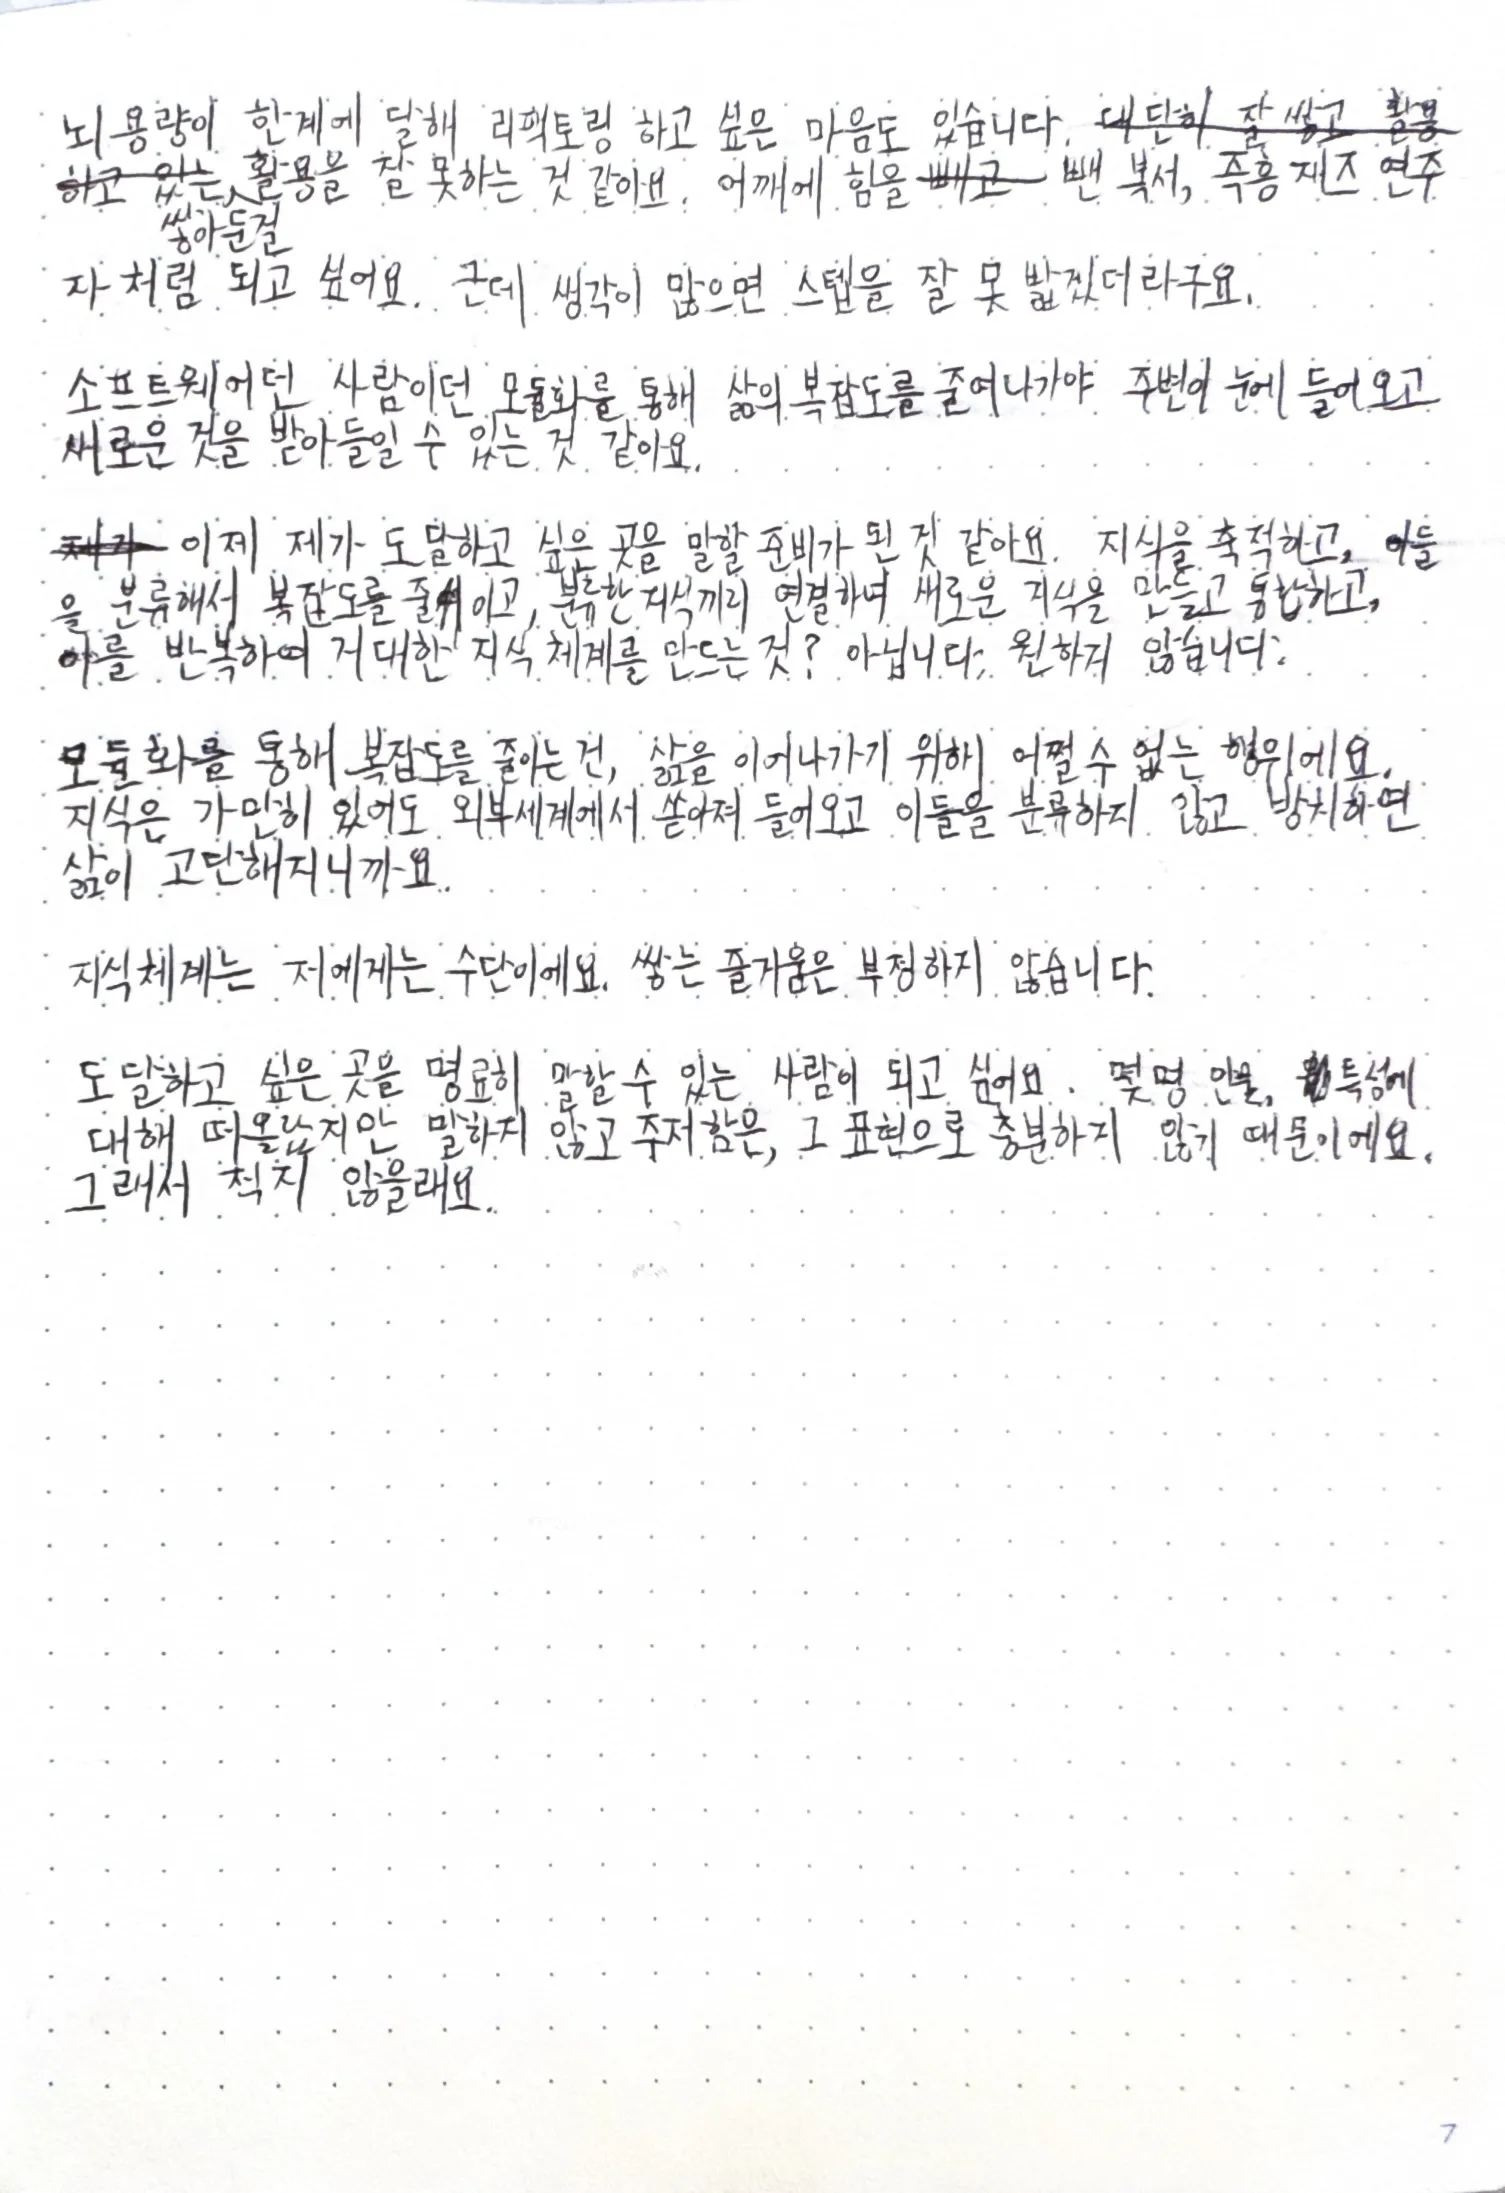 뇌용량이 한계에 달해 리팩토링 하고 싶은 마음도 있습니다. 대단히 잘 쌓고 활용
하고 있는 활용을 잘 못하는 것 같아요. 어깨에 힘을 빼고 뺀 복서, 즉흥 재즈 연주
쌓아둔걸
자 처럼 되고 싶어요. 근데 생각이 많으면 스텝을 잘 못 밟겠더라구요.
소프트웨어던 사람이던 모듈화를 통해 삶의 복잡도를 줄여나가야 주변이 눈에 들어오고
새로운 것을 받아들일 수 있는 것 같아요.
제가 이제 제가 도달하고 싶은 곳을 말할 준비가 된 것 같아요. 지식을 축적하고, 이들
을 분류해서 복잡도를 줄이고, 분류한 지식끼리 연결하며 새로운 지식을 만들고 통합하고,
이를 반복하여 거대한 지식 체계를 만드는 것? 아닙니다. 원하지 않습니다.
모듈화를 통해 복잡도를 줄이는 건, 삶을 이어나가기 위해 어쩔 수 없는 행위에요.
지식은 가만히 있어도 외부세계에서 쏟아져 들어오고 이들을 분류하지 않고 방치하면
삶이 고단해지니까요.
지식체계는 저에게는 수단이에요. 쌓는 즐거움은 부정하지 않습니다.
도달하고 싶은 곳을 명료히 말할 수 있는 사람이 되고 싶어요. 몇명 인물, 특성에
대해 떠올랐지만 말하지 않고 주저함은, 그 표현으로 충분하지 않기 때문이에요.
그래서 적지 않을래요.
7